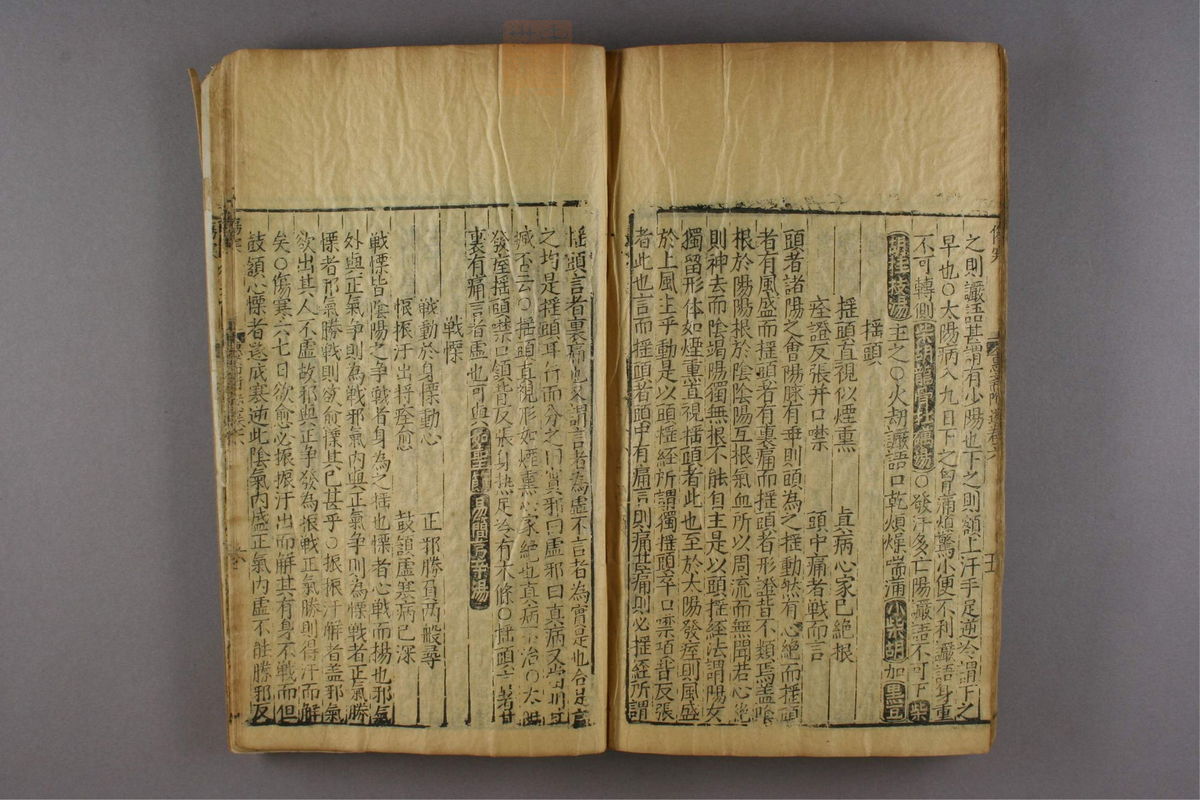 之則讝語甚謂有少陽也下之則額上汗手足逆冷謂下之
早也○太陽病八九日下之胷滿煩驚小便不利讝語身重
不可轉側柴胡龍骨牡蠣湯○發汗多亡陽讝語不可下柴
胡桂枝湯主之○火劫讝語口乾煩燥喘滿小柴胡加黑豆
揺頭
揺頭直視似煙熏 真病心家已絶根
痓證反張并口噤 頭中痛者戰而言
頭者諸陽之會陽脉有乖則頭為之揺動然有心絶而揺頭
者有風盛而揺頭者有裏痛而揺頭者形證皆不類焉盖陰
根於陽陽根於陰陰陽互根氣血所以周流而無間若心絶
則神去而陰竭陽獨無根不能自主是以頭揺經法謂陽反
獨留形体如煙熏直視揺頭者此也至於太陽發痓則風盛
於上風主乎動是以頭揺經所謂獨揺頭卒口噤項背反張
者此也言而揺頭者頭中有痛言則痛甚痛則必揺經所謂
揺頭言者裏痛也又謂言者為虛不言者為實是也合是言
之均是揺頭耳
緘否云○揺頭直視形如煙熏心家絶也真病不治○太陽
發痓揺頭噤口領背反張身熱足冷有本條○揺頭言者
裏有痛言者虛也可與
戰慄
戰動於身慄動心 正邪勝負兩般尋
振振汗出將痊愈 鼓頷虛寒病已深
戰慄皆陰陽之争戰者身為之揺也慄者心戰而揚也邪氣
外與正氣争則為戰邪氣內與正氣争則為慄戰者正氣勝
慄者邪氣勝戰則欲愈慄其已甚乎○振振汗解者盖邪氣
欲出其人不虛故邪與正争發為振戰正氣勝則得汗而解
矣○傷寒六七日欲愈必振振汗出而解其有身不戰而但
鼓頷心慄者遂成寒逆此陰氣內盛正氣內虛不能勝邪反